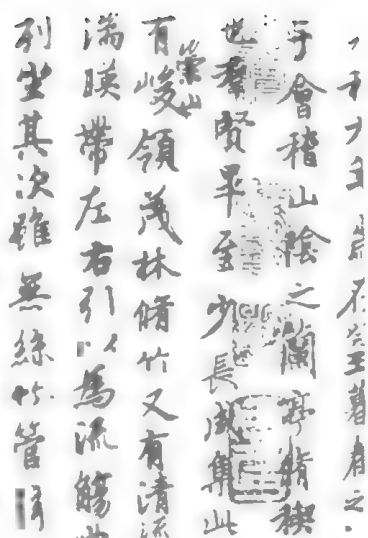 和九年在癸丑暮春之
于會稽山陰之蘭亭脩禊
也羣賢畢至少長咸集此
崇山
有峻領茂林脩竹又有清流
湍暎帶左右引以為流觴曲
列坐其次雖無絲竹管